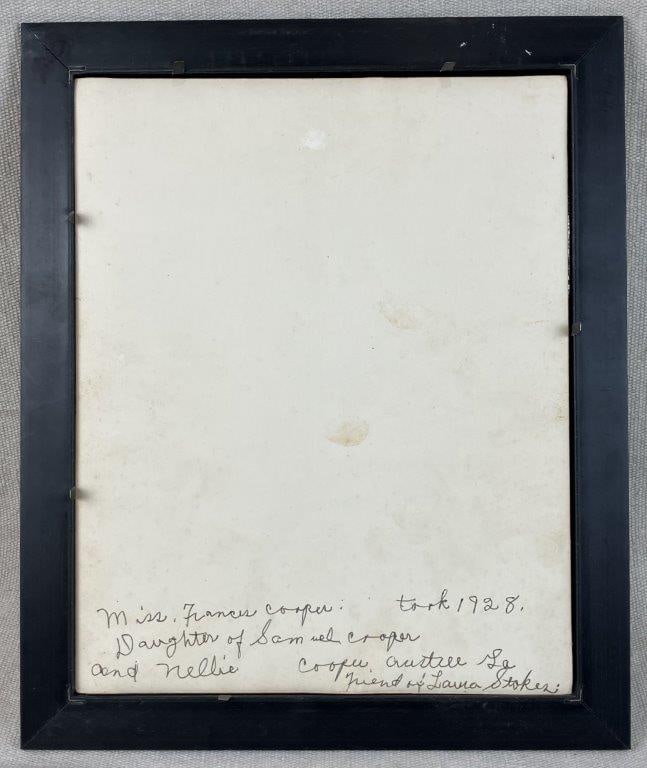 Miss. Frances cooper. took 1928.
Daughter of Samuel cooper
and Nellie cooper
Friend of Laura Stokes.